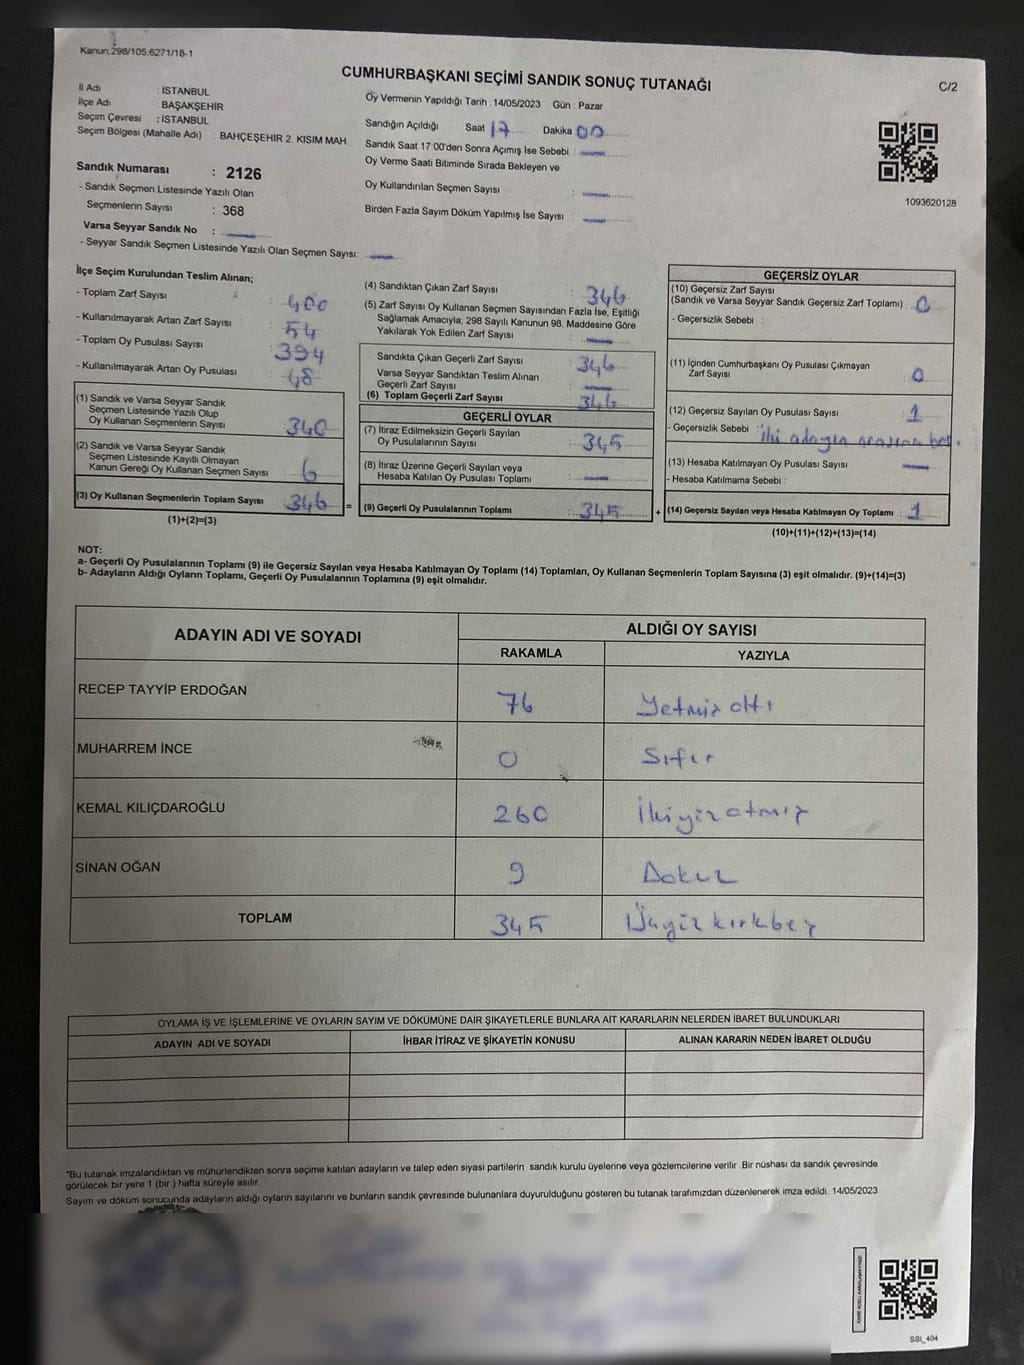 Kanun:298/105,6271/18-1
CUMHURBAŞKANI SEÇİMİ SANDIK SONUÇ TUTANAĞI
C/2
İl Adı : İSTANBUL
İlçe Adı : BAŞAKŞEHİR
Seçim Çevresi : İSTANBUL
Seçim Bölgesi (Mahalle Adı) : BAHÇEŞEHİR 2. KISIM MAH.
Sandık Numarası : 2126
- Sandık Seçmen Listesinde Yazılı Olan
Seçmenlerin Sayısı : 368
Varsa Seyyar Sandık No :
- Seyyar Sandık Seçmen Listesinde Yazılı Olan Seçmen Sayısı:
Oy Vermenin Yapıldığı Tarih : 14/05/2023 Gün : Pazar
Sandığın Açıldığı Saat 17 Dakika 00
Sandık Saat 17:00'den Sonra Açımış İse Sebebi :
Oy Verme Saati Bitiminde Sırada Bekleyen ve
Oy Kullandırılan Seçmen Sayısı :
Birden Fazla Sayım Döküm Yapılmış İse Sayısı :
1093620128
İlçe Seçim Kurulundan Teslim Alınan;
- Toplam Zarf Sayısı : 400
- Kullanılmayarak Artan Zarf Sayısı : 54
- Toplam Oy Pusulası Sayısı : 394
- Kullanılmayarak Artan Oy Pusulası : 48
(1) Sandık ve Varsa Seyyar Sandık
Seçmen Listesinde Yazılı Olup
Oy Kullanan Seçmenlerin Sayısı : 340
(2) Sandık ve Varsa Seyyar Sandık
Seçmen Listesinde Kayıtlı Olmayan
Kanun Gereği Oy Kullanan Seçmen Sayısı : 6
(3) Oy Kullanan Seçmenlerin Toplam Sayısı : 346 =
(1)+(2)=(3)
(4) Sandıktan Çıkan Zarf Sayısı : 346
(5) Zarf Sayısı Oy Kullanan Seçmen Sayısından Fazla İse, Eşitliği
Sağlamak Amacıyla, 298 Sayılı Kanunun 98. Maddesine Göre
Yakılarak Yok Edilen Zarf Sayısı :
Sandıkta Çıkan Geçerli Zarf Sayısı : 346
Varsa Seyyar Sandıktan Teslim Alınan
Geçerli Zarf Sayısı :
(6) Toplam Geçerli Zarf Sayısı : 346
GEÇERLİ OYLAR
(7) İtiraz Edilmeksizin Geçerli Sayılan
Oy Pusulalarının Sayısı : 345
(8) İtiraz Üzerine Geçerli Sayılan veya
Hesaba Katılan Oy Pusulası Toplamı :
(9) Geçerli Oy Pusulalarının Toplamı : 345 +
GEÇERSİZ OYLAR
(10) Geçersiz Zarf Sayısı
(Sandık ve Varsa Seyyar Sandık Geçersiz Zarf Toplamı) : 0
- Geçersizlik Sebebi :
(11) İçinden Cumhurbaşkanı Oy Pusulası Çıkmayan
Zarf Sayısı : 0
(12) Geçersiz Sayılan Oy Pusulası Sayısı : 1
- Geçersizlik Sebebi : iki adayın arasına
(13) Hesaba Katılmayan Oy Pusulası Sayısı :
- Hesaba Katılmama Sebebi :
(14) Geçersiz Sayılan veya Hesaba Katılmayan Oy Toplamı : 1
(10)+(11)+(12)+(13)=(14)
NOT:
a- Geçerli Oy Pusulalarının Toplamı (9) ile Geçersiz Sayılan veya Hesaba Katılmayan Oy Toplamı (14) Toplamları, Oy Kullanan Seçmenlerin Toplam Sayısına (3) eşit olmalıdır. (9)+(14)=(3)
b- Adayların Aldığı Oyların Toplamı, Geçerli Oy Pusulalarının Toplamına (9) eşit olmalıdır.
ADAYIN ADI VE SOYADI ALDIĞI OY SAYISI
RAKAMLA YAZIYLA
RECEP TAYYİP ERDOĞAN 76 Yetmiş altı
MUHARREM İNCE 0 Sıfır
KEMAL KILIÇDAROĞLU 260 İkiyüz atmış
SİNAN OĞAN 9 Dokuz
TOPLAM 345 Üçyüz kırkbeş
OYLAMA İŞ VE İŞLEMLERİNE VE OYLARIN SAYIM VE DÖKÜMÜNE DAİR ŞİKAYETLERLE BUNLARA AİT KARARLARIN NELERDEN İBARET BULUNDUKLARI
ADAYIN ADI VE SOYADI İHBAR İTİRAZ VE ŞİKAYETİN KONUSU ALINAN KARARIN NEDEN İBARET OLDUĞU
*Bu tutanak imzalandıktan ve mühürlendikten sonra seçime katılan adayların ve talep eden siyasi partilerin sandık kurulu üyelerine veya gözlemcilerine verilir .Bir nüshası da sandık çevresinde
görülecek bir yere 1 (bir ) hafta süreyle asılır.
Sayım ve döküm sonucunda adayların aldığı oyların sayılarını ve bunların sandık çevresinde bulunanlara duyurulduğunu gösteren bu tutanak tarafımızdan düzenlenerek imza edildi. 14/05/2023
SSI_404